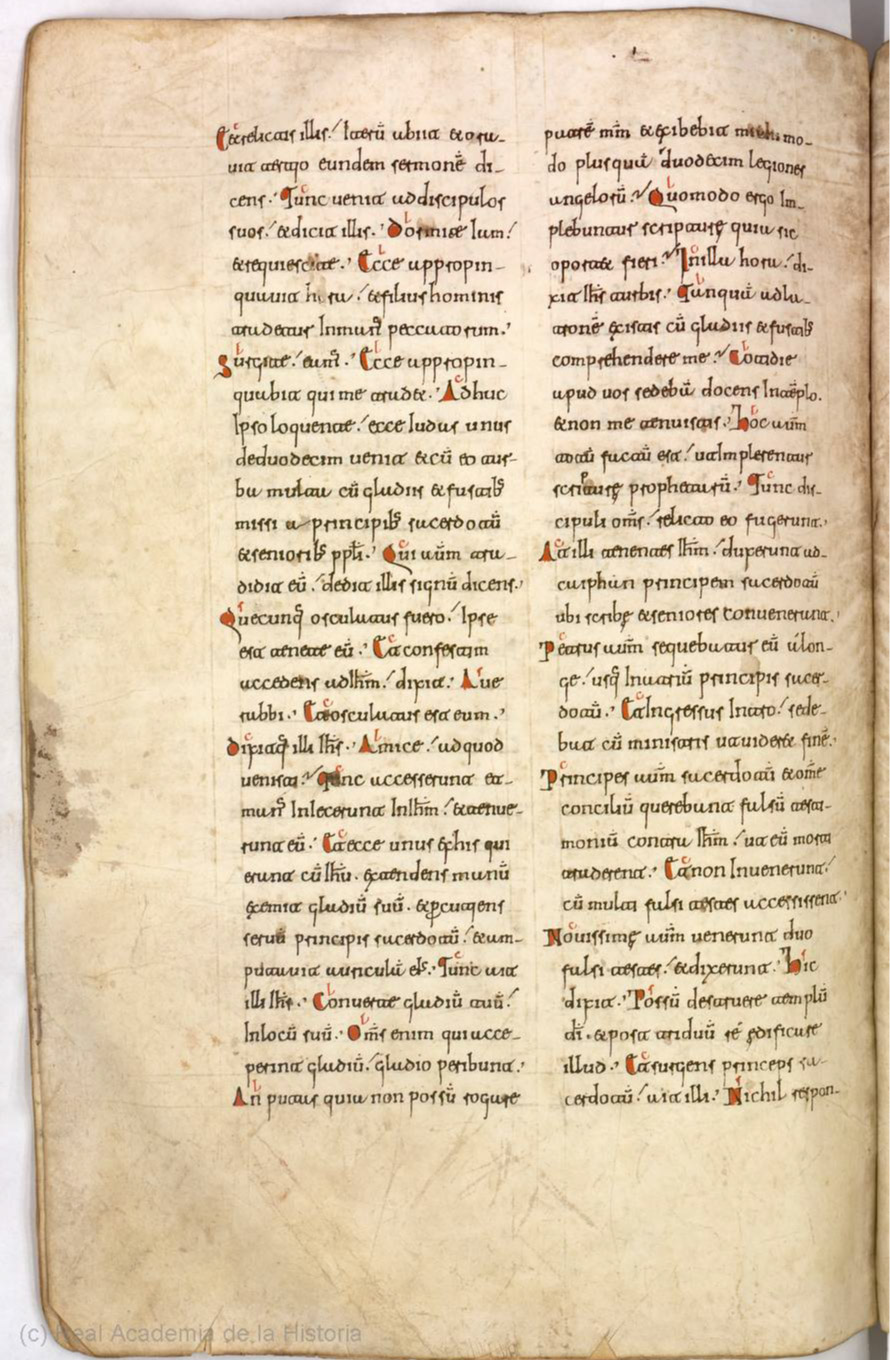 Et relictis illis. Iterū abiit et ora-
uit tertio eundem sermonē di-
cens. Tunc uenit ad discipulos
suos. et dicit illis. Dormite Iam.
et requiescite. Ecce appropin-
quauit hora. et filius hominis
tradetur In manꝰ peccatorum.
Surgite. eamꝰ. Ecce appropin-
quabit qui me tradet. Adhuc
Ipso loquente. ecce Iudas unus
de duodecim uenit et cū eo tur-
ba multa cū gladiis et fustibꝰ
missi a principibꝰ sacerdotū
et senioribꝰ ppłi. Qui aūm tra-
didit eū. dedit illis signū dicens.
Quecunq osculatus fuero. Ipse
est tenete eū. Et confestim
accedens ad Ihm̄. dixit. Aue
rabbi. Et osculatus est eum.
Dixitq illi Ihs̄. Amice. ad quod
uenisti. Tunc accesserunt et
manꝰ Inlecerunt In Ihm̄. et tenue-
runt eū. Et ecce unus ex his qui
erant cū Ihū. extendens manū
exemit gladiū suū. et percutiens
seruū principis sacerdotū. et am-
putauit auriculā eꝰ. Tunc ait
illi Ihs̄. Conuerte gladiū tuū.
In locū suū. Oms̄ enim qui acce-
perint gladiū. gladio peribunt.
An putas quia non possū rogare
patrē mm̄ et exibebit michi mo-
do plusquā duodecim legiones
angelorū. Quomodo ergo Im-
plebuntur scripturę quia sic
oportet fieri. In illa hora. di-
xit Ihs̄ turbis. Tanquā ad la-
tronē existis cū gladiis et fustibꝰ
comprehendere me. Cotidie
apud uos sedebā docens In tēplo.
et non me tenuistis. Hoc aūm
totū factū est. ut Implerentur
scripturę prophetarū. Tunc dis-
cipuli oms̄. relicto eo fugerunt.
At illi tenentes Ihm̄. duxerunt ad
caiphan principem sacerdotū
ubi scribę et seniores conuenerunt.
Petrus aūm sequebatur eū a lon-
ge. usq In atriū principis sacer-
dotū. Et Ingressus Intro. sede-
bat cū ministris ut uideret finē.
Principes aūm sacerdotū et omē
conciliū querebant falsū testi-
moniū contra Ihm̄. ut eū morti
traderent. Et non Inuenerunt.
cū multi falsi testes accessissent.
Nouissimę aūm uenerunt duo
falsi testes. et dixerunt. Hic
dixit. Possū destruere templū
dī. et post triduū reędificare
illud. Et surgens princeps sa-
cerdotū. ait illi. Nichil respon-
(c) Real Academia de la Historia